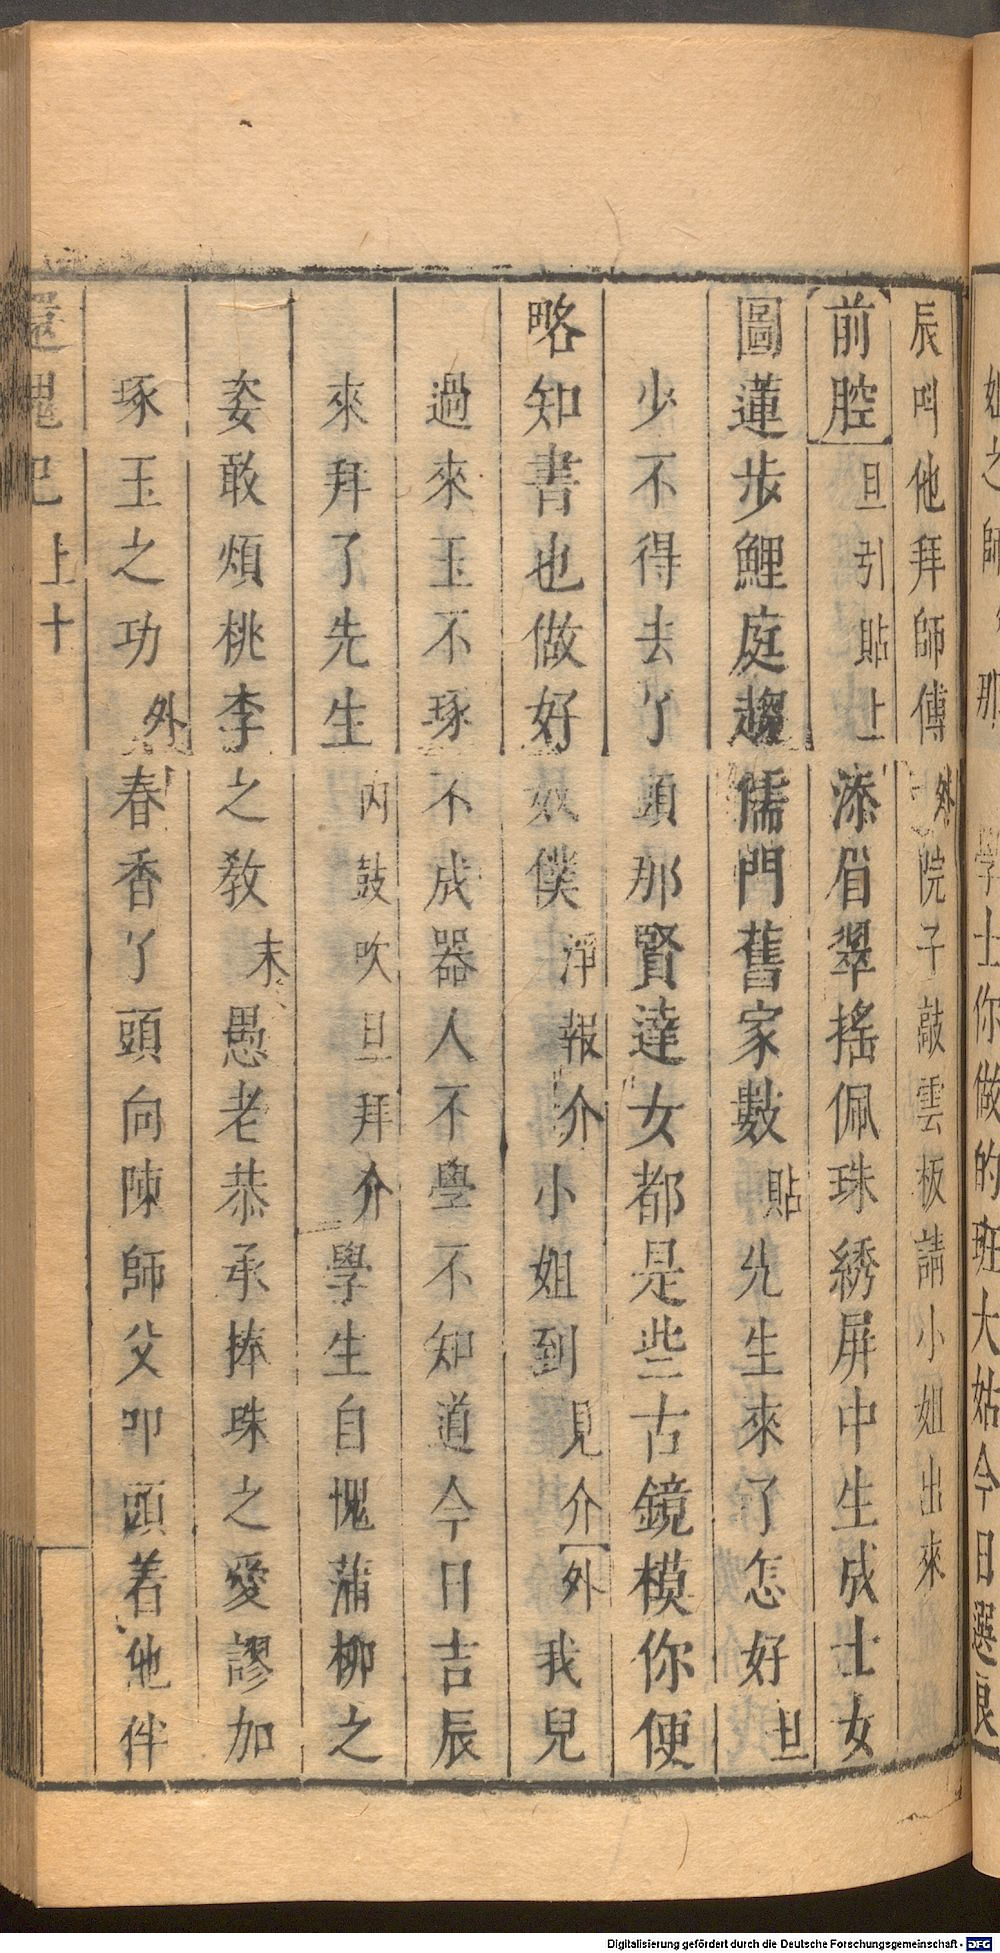 學士你做的班大姑今日選良
辰呌他拜師傅外院子敲雲板請小姐出來
前腔旦引貼上添眉翠搖佩珠綉屏中生成士女
圖蓮步鯉庭趨儒門舊家數貼先生來了怎好旦
少不得去了頭那賢達女都是些古鏡模你便
略知書也做好奴僕淨報介小姐到見介外我兒
過來玉不琢不成器人不學不知道今日吉辰
來拜了先生內鼓吹旦拜介學生自愧蒲柳之
姿敢煩桃李之敎末愚老恭承捧珠之愛謬加
琢玉之功外春香了頭向陳師父叩頭着他伴
還魂記 上 十
Digitalisierung gefördert durch die Deutsche Forschungsgemeinschaft - DFG